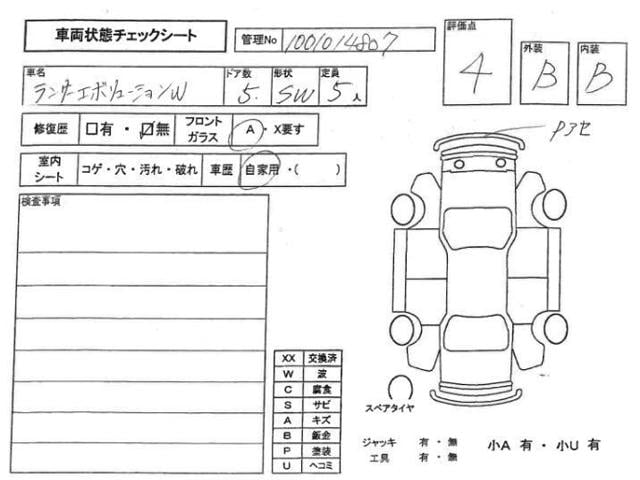 車両状態チェックシート
管理No 1001014807
評価点 4
外装 B
内装 B
車名 ランサーエボリューションW
ドア数 5.
形状 SW
定員 5人
修復歴 □有・☑無 フロントガラス A・X要す
室内シート コゲ・穴・汚れ・破れ 車歴 自家用・( )
検査事項
XX 交換済
W 波
C 腐食
S サビ
A キズ
B 鈑金
P 塗装
U ヘコミ
スペアタイヤ
ジャッキ 有・無
工具 有・無
小A 有・小U 有